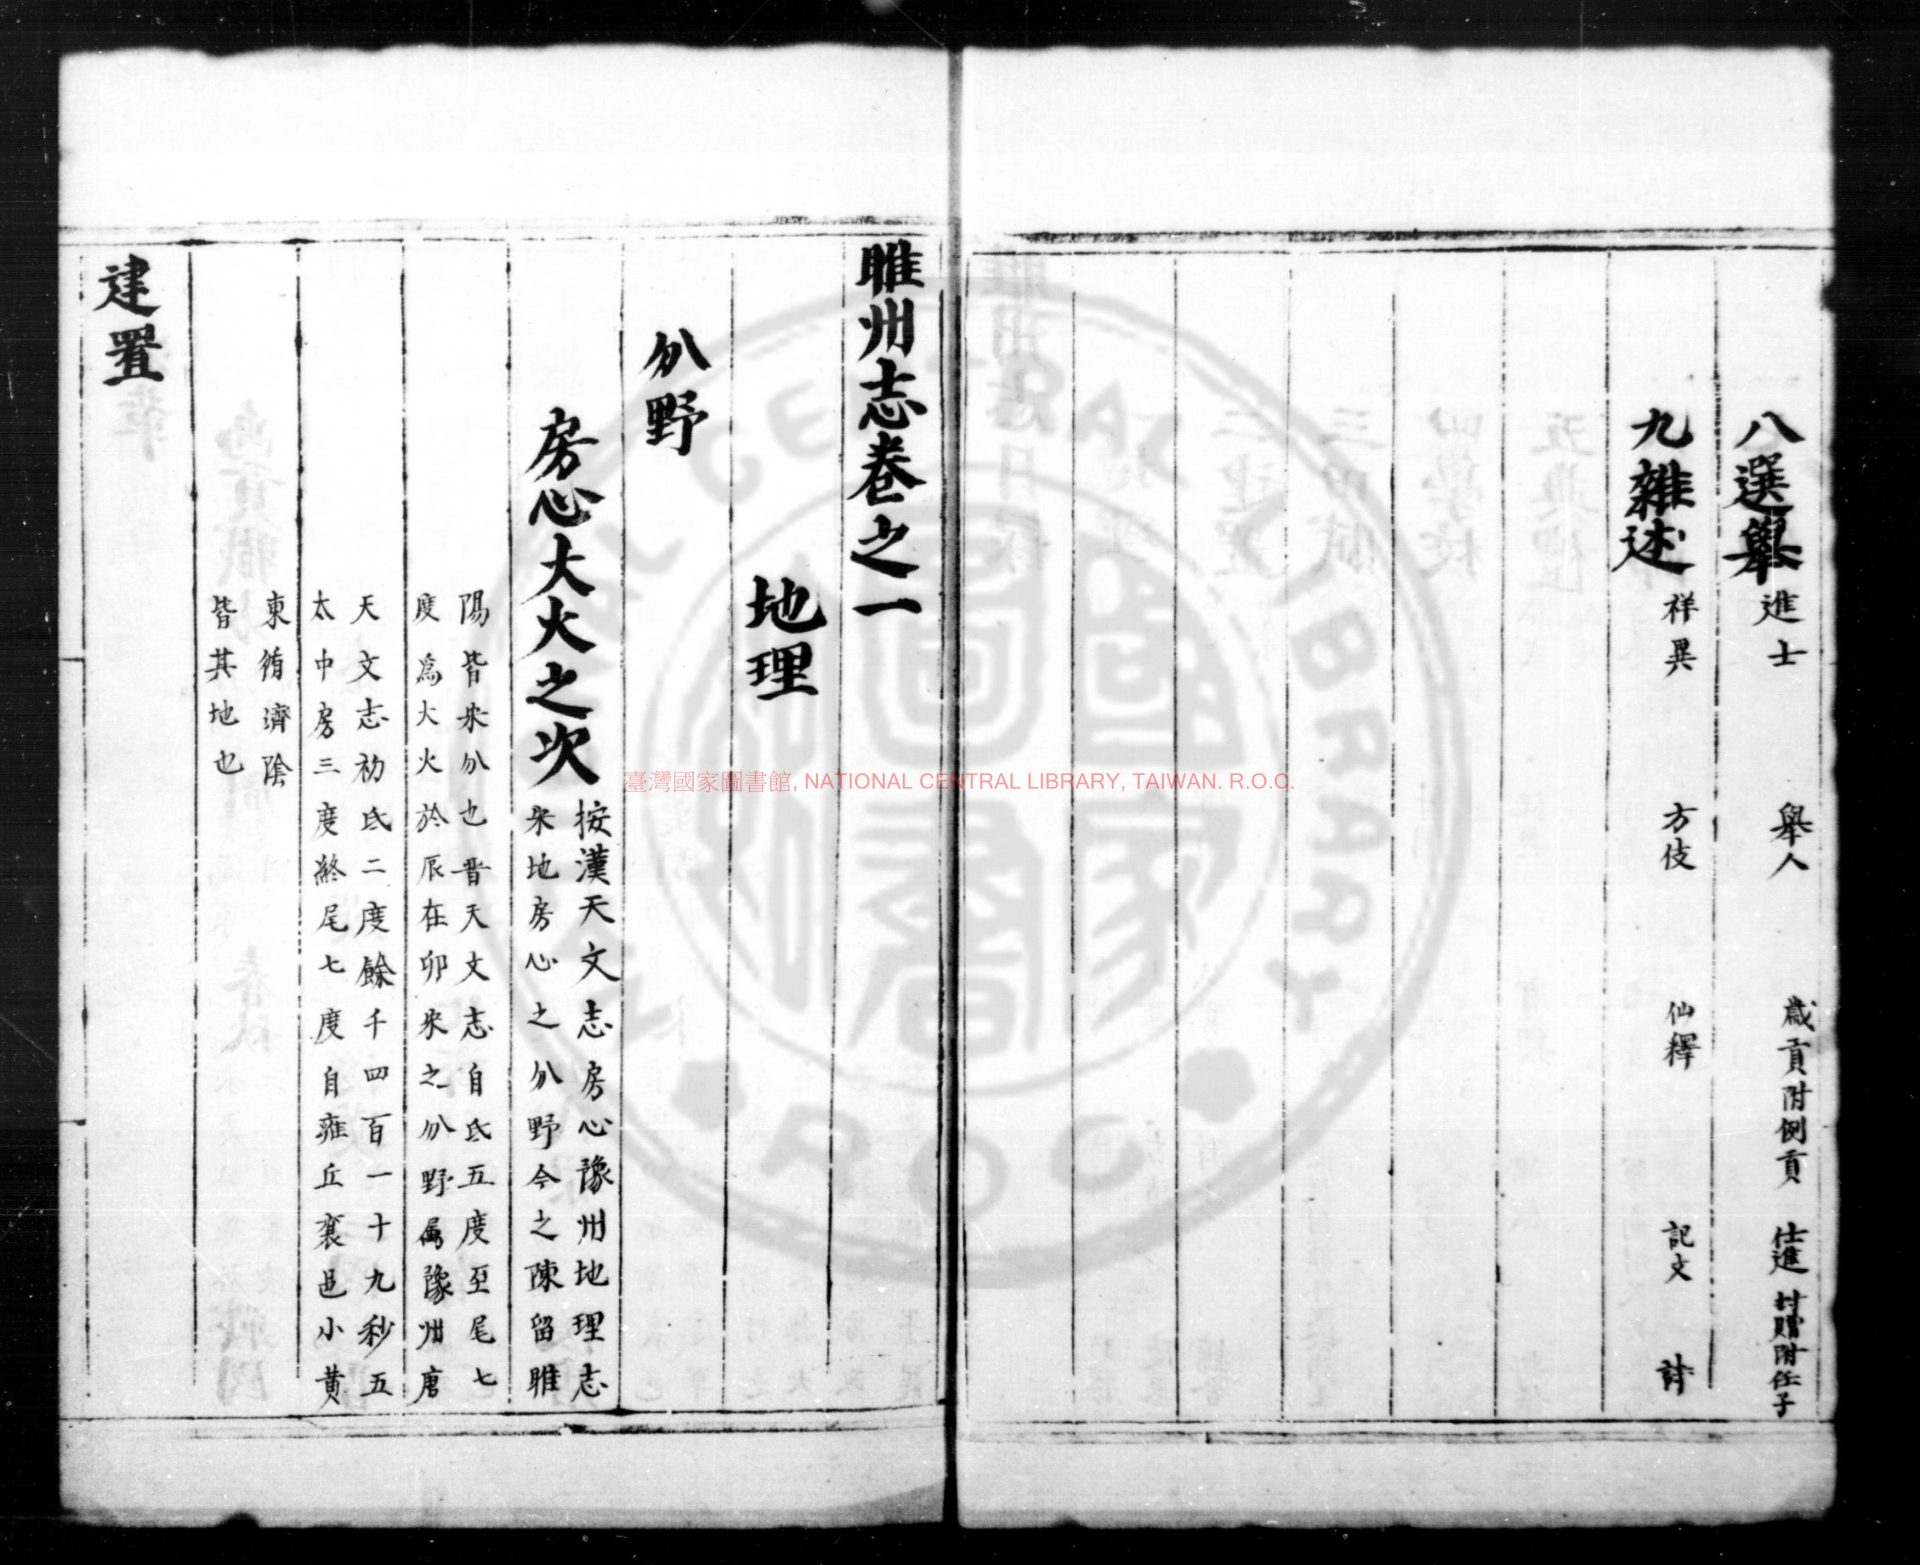 八選舉 進士 舉人 歲貢附例貢 仕進 封贈附任子
九雜述 祥異 方伎 仙釋 記文 詩
睢州志卷之一
地理
分野
房心大火之次 按漢天文志房心豫州地理志
宋地房心之分野今之陳留睢
陽皆宋分也晉天文志自氐五度至尾七
度爲大火於辰在卯宋之分野属豫州唐
天文志初氐二度餘千四百一十九秒五
太中房三度終尾七度自雍丘襄邑小黃
東循濟陰
皆其地也
建置
臺灣國家圖書館, NATIONAL CENTRAL LIBRARY, TAIWAN. R.O.C.